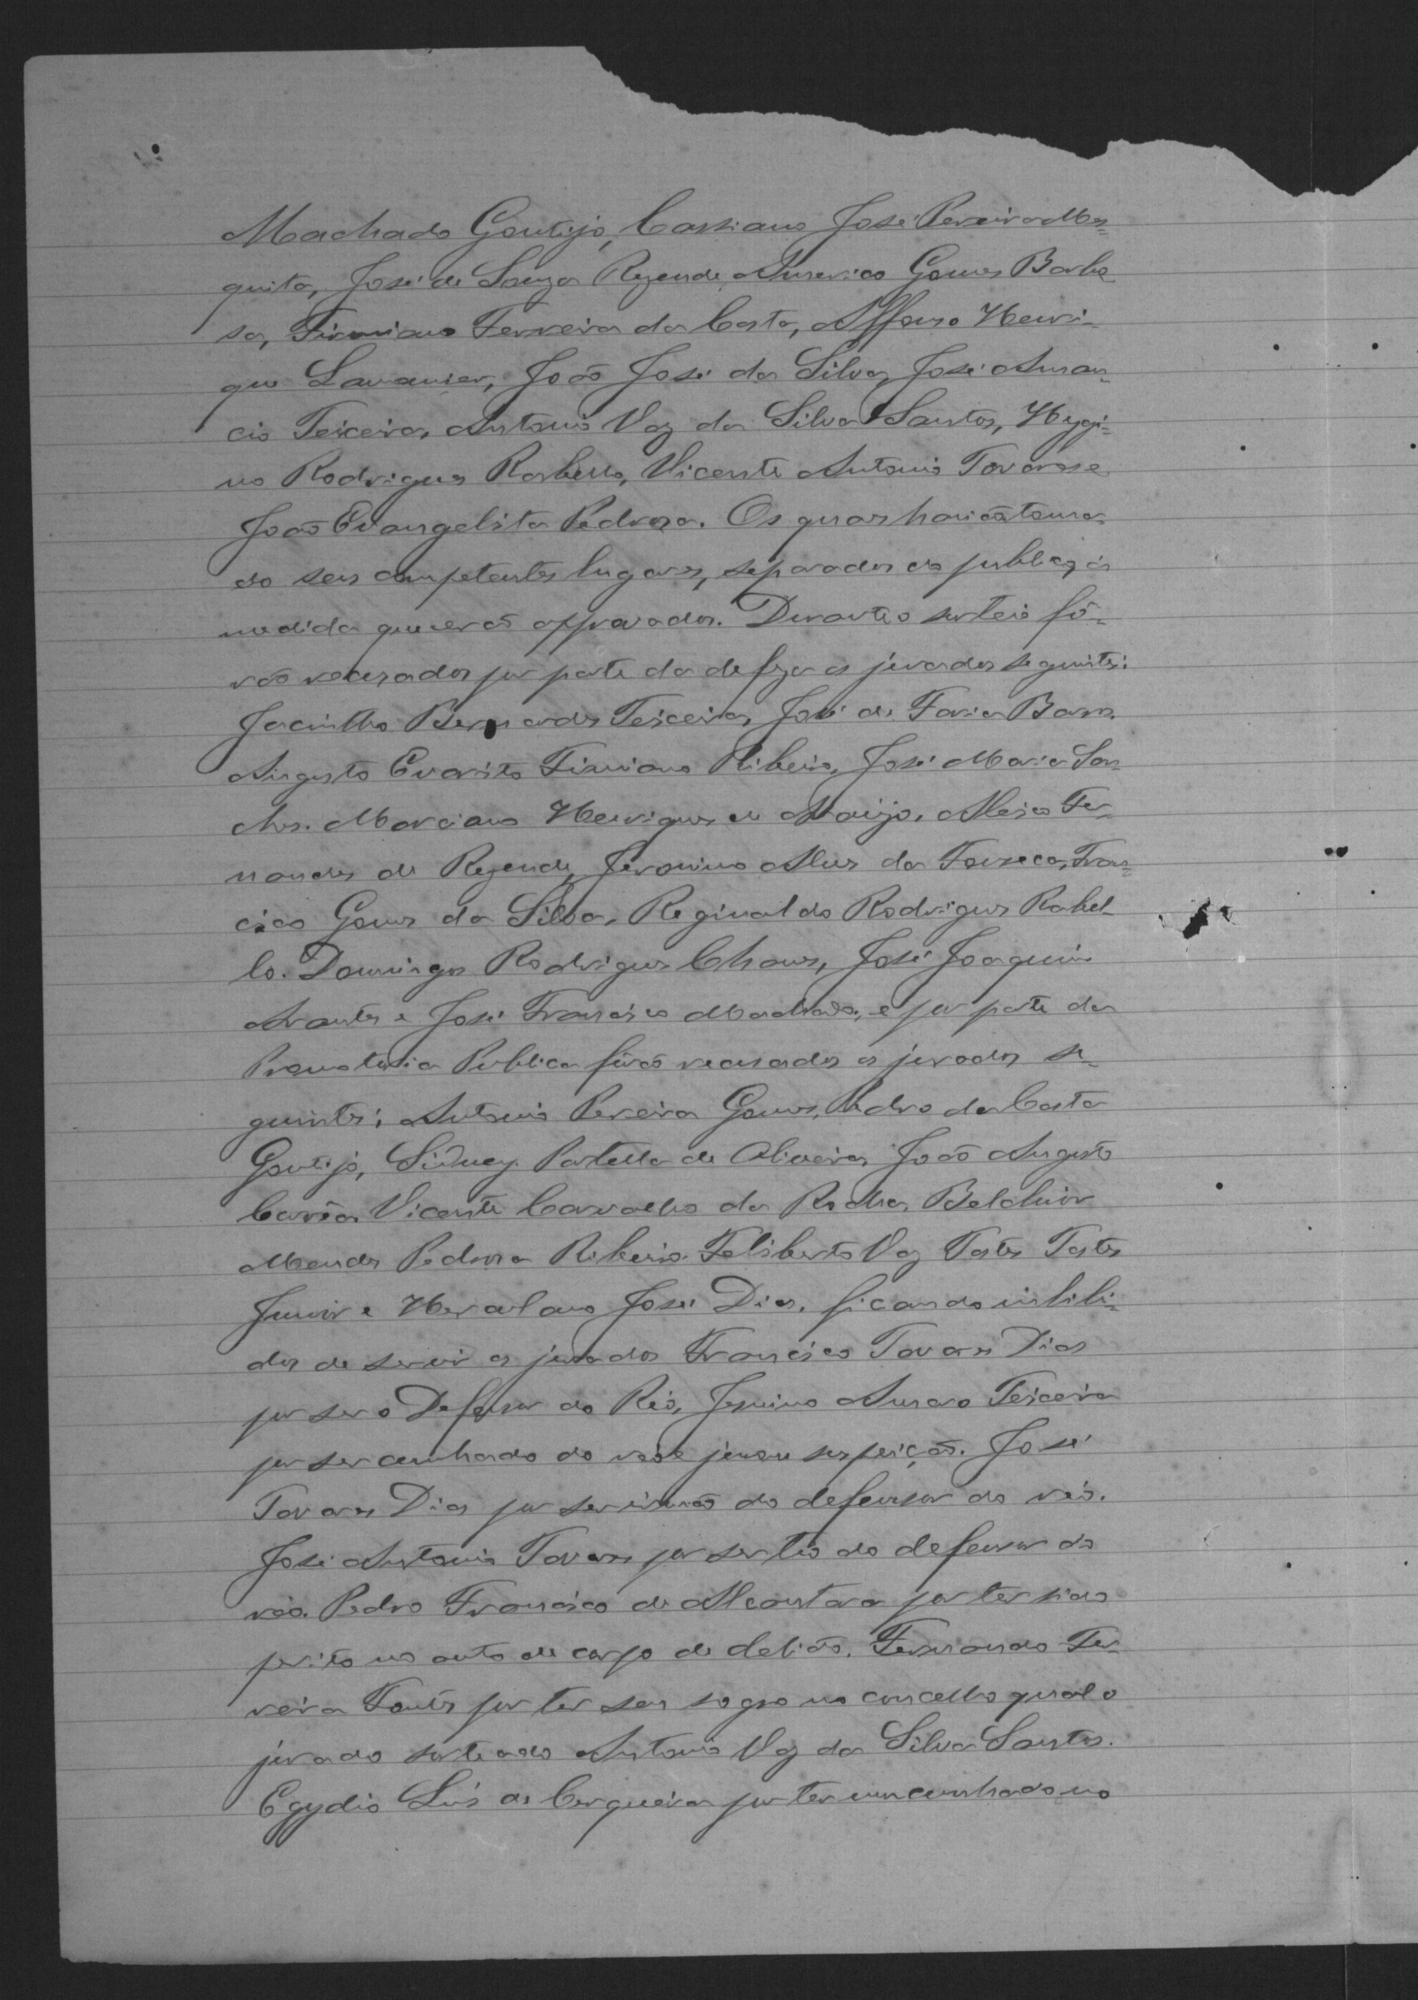 Machado Gontijo, Cassiano José Pereira Mes=
quita, José de Souza Rezende, Americo Gomes Barbo
sa, Firmiano Ferreira da Costa, Affonso Henri-
que Lamounier, João José da Silva, José Aman-
cio Teixeira, Antonio Vaz da Silva Santos, Hygi-
no Rodrigues Rabello, Vicente Antonio Tavares e
João Evangelista Pedrosa. Os quaes havião toma-
do seus competentes lugares, separados do publico, á
medida que erão approvados. Durante o sorteio fo-
rão recusados por parte da defeza os jurados seguintes:
Jacintho Bernardes Teixeira, José de Faria Barros
Augusto Evaristo Firmiano Ribeiro, José Maria San-
chos. Marciano Henriques de Araujo, Aleixo Fer-
nandes de Rezende, Jeronimo Alves da Fonseca, Fran=
cisco Gomes da Silva, Reginaldo Rodrigues Rabel-
lo. Domingos Rodrigues Chaves, José Joaquim
Arantes e José Francisco Machado, e por parte da
Promotoria Publica forão recusados os jurados se-
guintes; Antonio Pereira Gomes, Pedro da Costa
Gontijo, Sidney Portella de Oliveira, João Augusto
Corrêa, Vicente Carvalho da Rocha, Belchior
Mendes Pedrosa Ribeiro. Feliberto Vaz Tostes Tostes
Junior e Herculano José Dias, ficando inhibi-
dos de servir os jurados Francisco Tavares Dias
por ser o Defensor do Reo, Jesuino Amaro Teixeira
por ser cunhado do reo e jurou suspeição. José
Tavares Dias por ser irmão do defensor do reo.
José Antonio Tavares por ser tio do defensor do
reo. Pedro Francisco de Alcantara por ter sido
perito no auto de corpo de delicto. Fernando Fer-
reira Fontes por ter seu sogro no concelho qual o
jurado sorteado Antonio Vaz da Silva Santos.
Egydio Luis de Cerqueira por ter um cunhado no